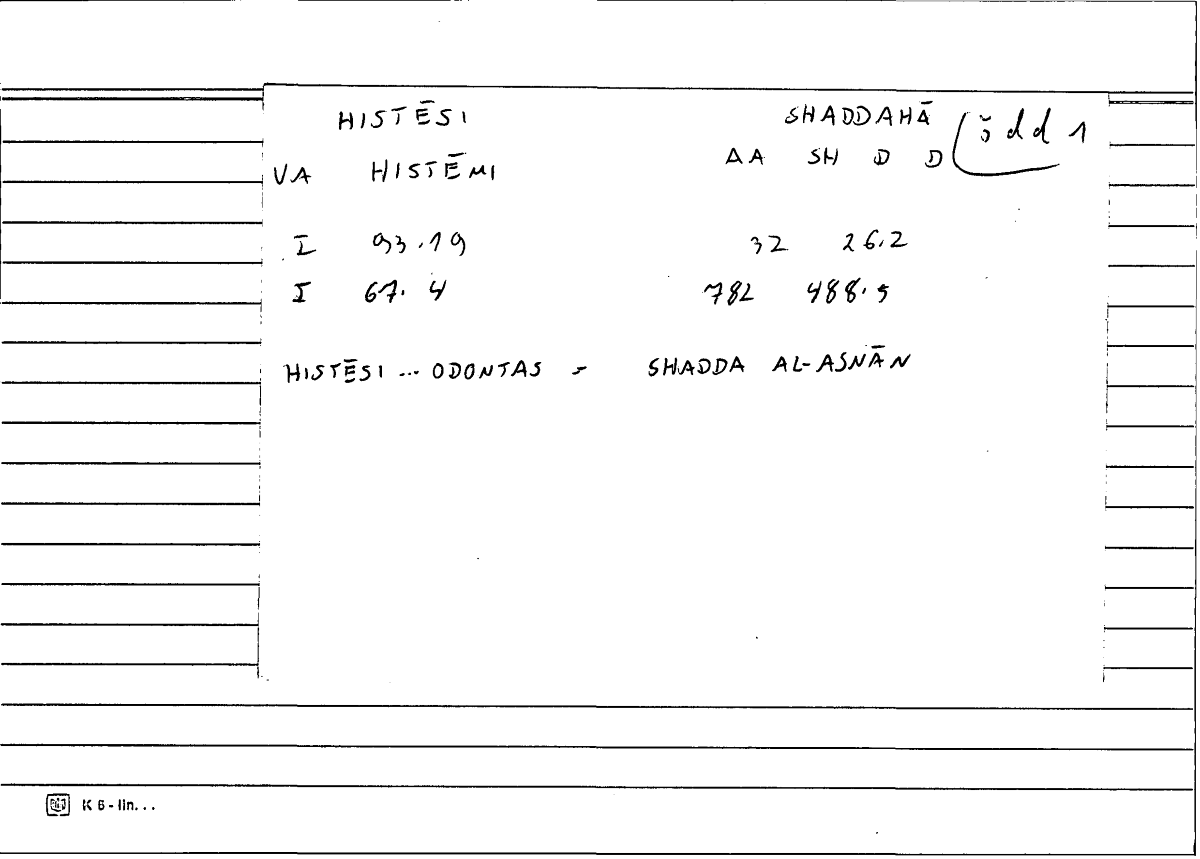 HISTĒSI SHADDAHĀ šdd 1
VA HISTĒMI AA SH D D
I 93.19 32 26.2
I 67.4 782 488.5
HISTĒSI ... ODONTAS = SHADDA AL-ASNĀN
K 6 - lin...